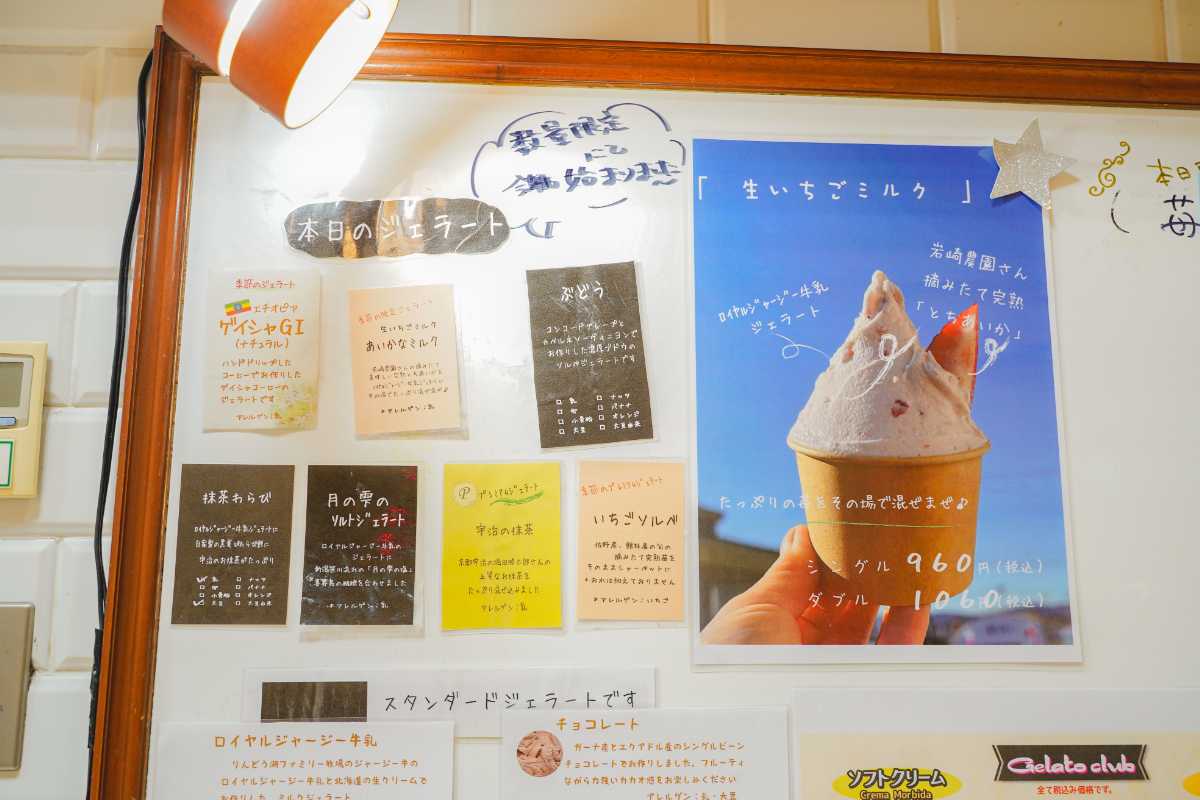 数量限定
にて
始まりました
本日のジェラート
季節のジェラート
エチオピア
ゲイシャG1
(ナチュラル)
ハンドドリップした
コーヒーでお作りした
ゲイシャコーヒーの
ジェラートです
アレルゲン:乳
季節の限定ジェラート
生いちごミルク
あいかなミルク
*アレルゲン:乳
ぶどう
コンコードグレープと
カベルネソーヴィニヨンで
お作りした濃厚ブドウの
ソルベジェラートです
□ 乳 □ ナッツ
□ 卵 □ バナナ
□ 小麦粉 □ オレンジ
□ 大豆 □ 大豆由来
抹茶わらび
ロイヤルジャージー牛乳ジェラートに
自家製の黒蜜とわらび餅に
宇治のお抹茶がたっぷり
☑ 乳 □ ナッツ
□ 卵 □ バナナ
□ 小麦粉 □ オレンジ
☑ 大豆 □ 大豆由来
月の雫の
ソルトジェラート
ロイヤルジャージー牛乳の
ジェラートに
新潟笹川流れの「月の雫の塩」
喜界島の粗糖を合わせました
*アレルゲン:乳
P プレミアムジェラート
宇治の抹茶
上質なお抹茶を
たっぷり混ぜ込みました
アレルゲン:乳
季節のプレミアムジェラート
いちごソルベ
摘みたて完熟苺を
そのままシャーベットに
*お水は加えておりません
*アレルゲン:いちご
「 生いちごミルク 」
岩﨑農園さん
摘みたて完熟
「とちあいか」
ロイヤルジャージー牛乳
ジェラート
たっぷりの苺をその場で混ぜまぜ♪
シングル 960円(税込)
ダブル 1060円(税込)
本日
苺
スタンダードジェラートです
ロイヤルジャージー牛乳
りんどう湖ファミリー牧場のジャージー牛の
ロイヤルジャージー牛乳と北海道の生クリームで
お作りした、ミルクジェラート
チョコレート
ガーナ産とエクアドル産のシングルビーン
チョコレートでお作りしました、フルーティ
ながら力強いカカオ感をお楽しみください
アレルゲン:乳・大豆
ソフトクリーム
Crema Morbida
Gelato club
全て税込み価格です。